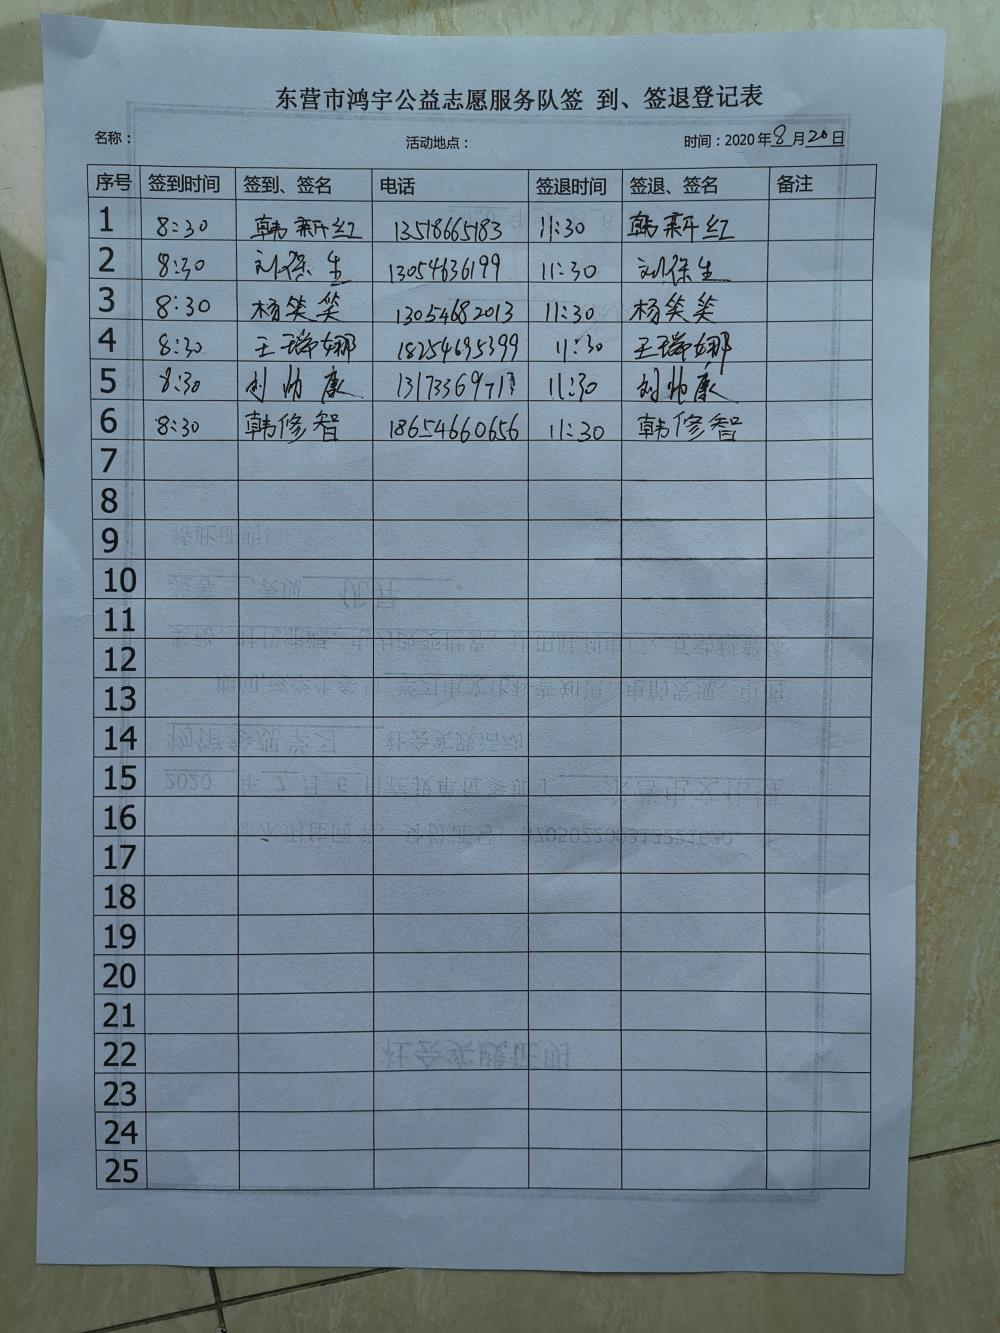 东营市鸿宇公益志愿服务队签 到、签退登记表
名称： 活动地点： 时间：2020年8月20日
序号 签到时间 签到、签名 电话 签退时间 签退、签名 备注
1 8:30 韩新红 13518665183 11:30 韩新红
2 8:30 刘保生 13054636199 11:30 刘保生
3 8:30 杨笑笑 13054682013 11:30 杨笑笑
4 8:30 王瑞娜 18254695399 11:30 王瑞娜
5 8:30 刘帅康 11:30 刘帅康
6 8:30 韩修智 18654660656 11:30 韩修智
7
8
9
10
11
12
13
14
15
16
17
18
19
20
21
22 社会实践证明
23
24
25